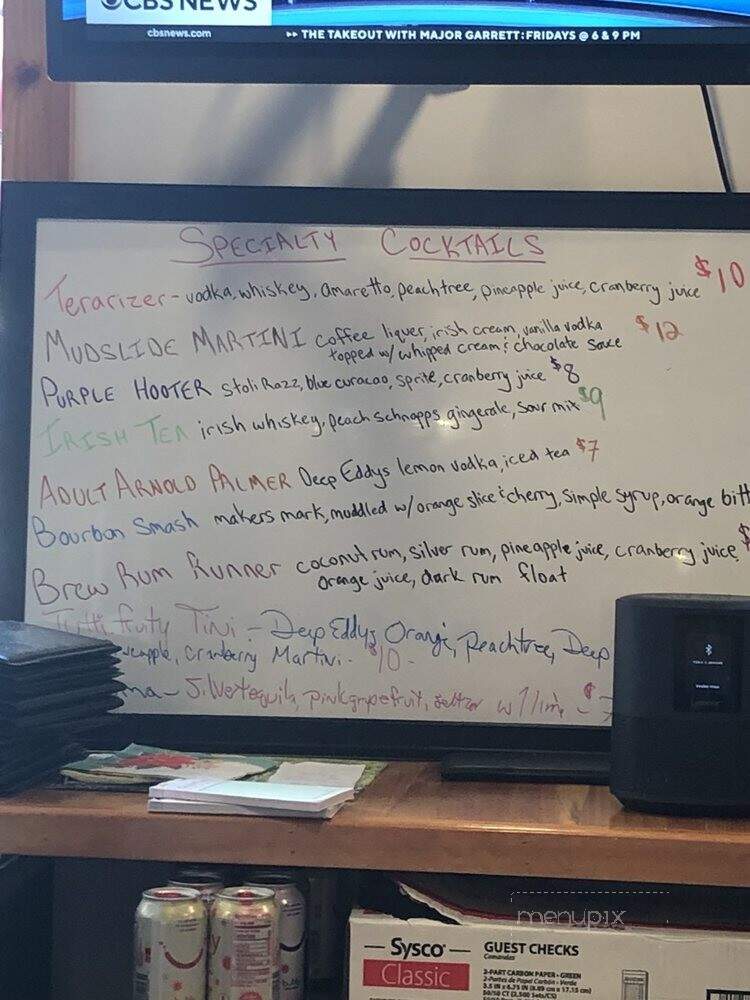 CBS NEWS
cbsnews.com
▸▸ THE TAKEOUT WITH MAJOR GARRETT: FRIDAYS @ 6 & 9 PM
SPECIALTY COCKTAILS
Terarizer - vodka, whiskey, amaretto, peachtree, pineapple juice, cranberry juice $10
MUDSLIDE MARTINI coffee liquer, irish cream, vanilla vodka $12
topped w/ whipped cream & chocolate sauce
PURPLE HOOTER Stoli Razz, blue curacao, sprite, cranberry juice $8
IRISH TEA irish whiskey, peach schnapps gingerale, sour mix $9
ADULT ARNOLD PALMER Deep Eddys lemon vodka, iced tea $7
Bourbon Smash makers mark, muddled w/ orange slice & cherry, simple syrup, orange bitt
Brew Rum Runner coconut rum, silver rum, pineapple juice, cranberry juice $
orange juice, dark rum float
Tutti fruity Tini - Deep Eddys Orange, Peachtree, Deep
neapple, Cranberry Martini - $10 -
ma - Silver tequila, pink grapefruit, seltzer w/ lime - $7
menupix
Sysco
Classic
GUEST CHECKS
Comandas
2-PART CARBON PAPER • GREEN
2-Partes de Papel Carbón • Verde
3.5 IN x 6.75 IN (8.89 cm x 17.15 cm)
50/50 CT (2,500 Sets/CS)